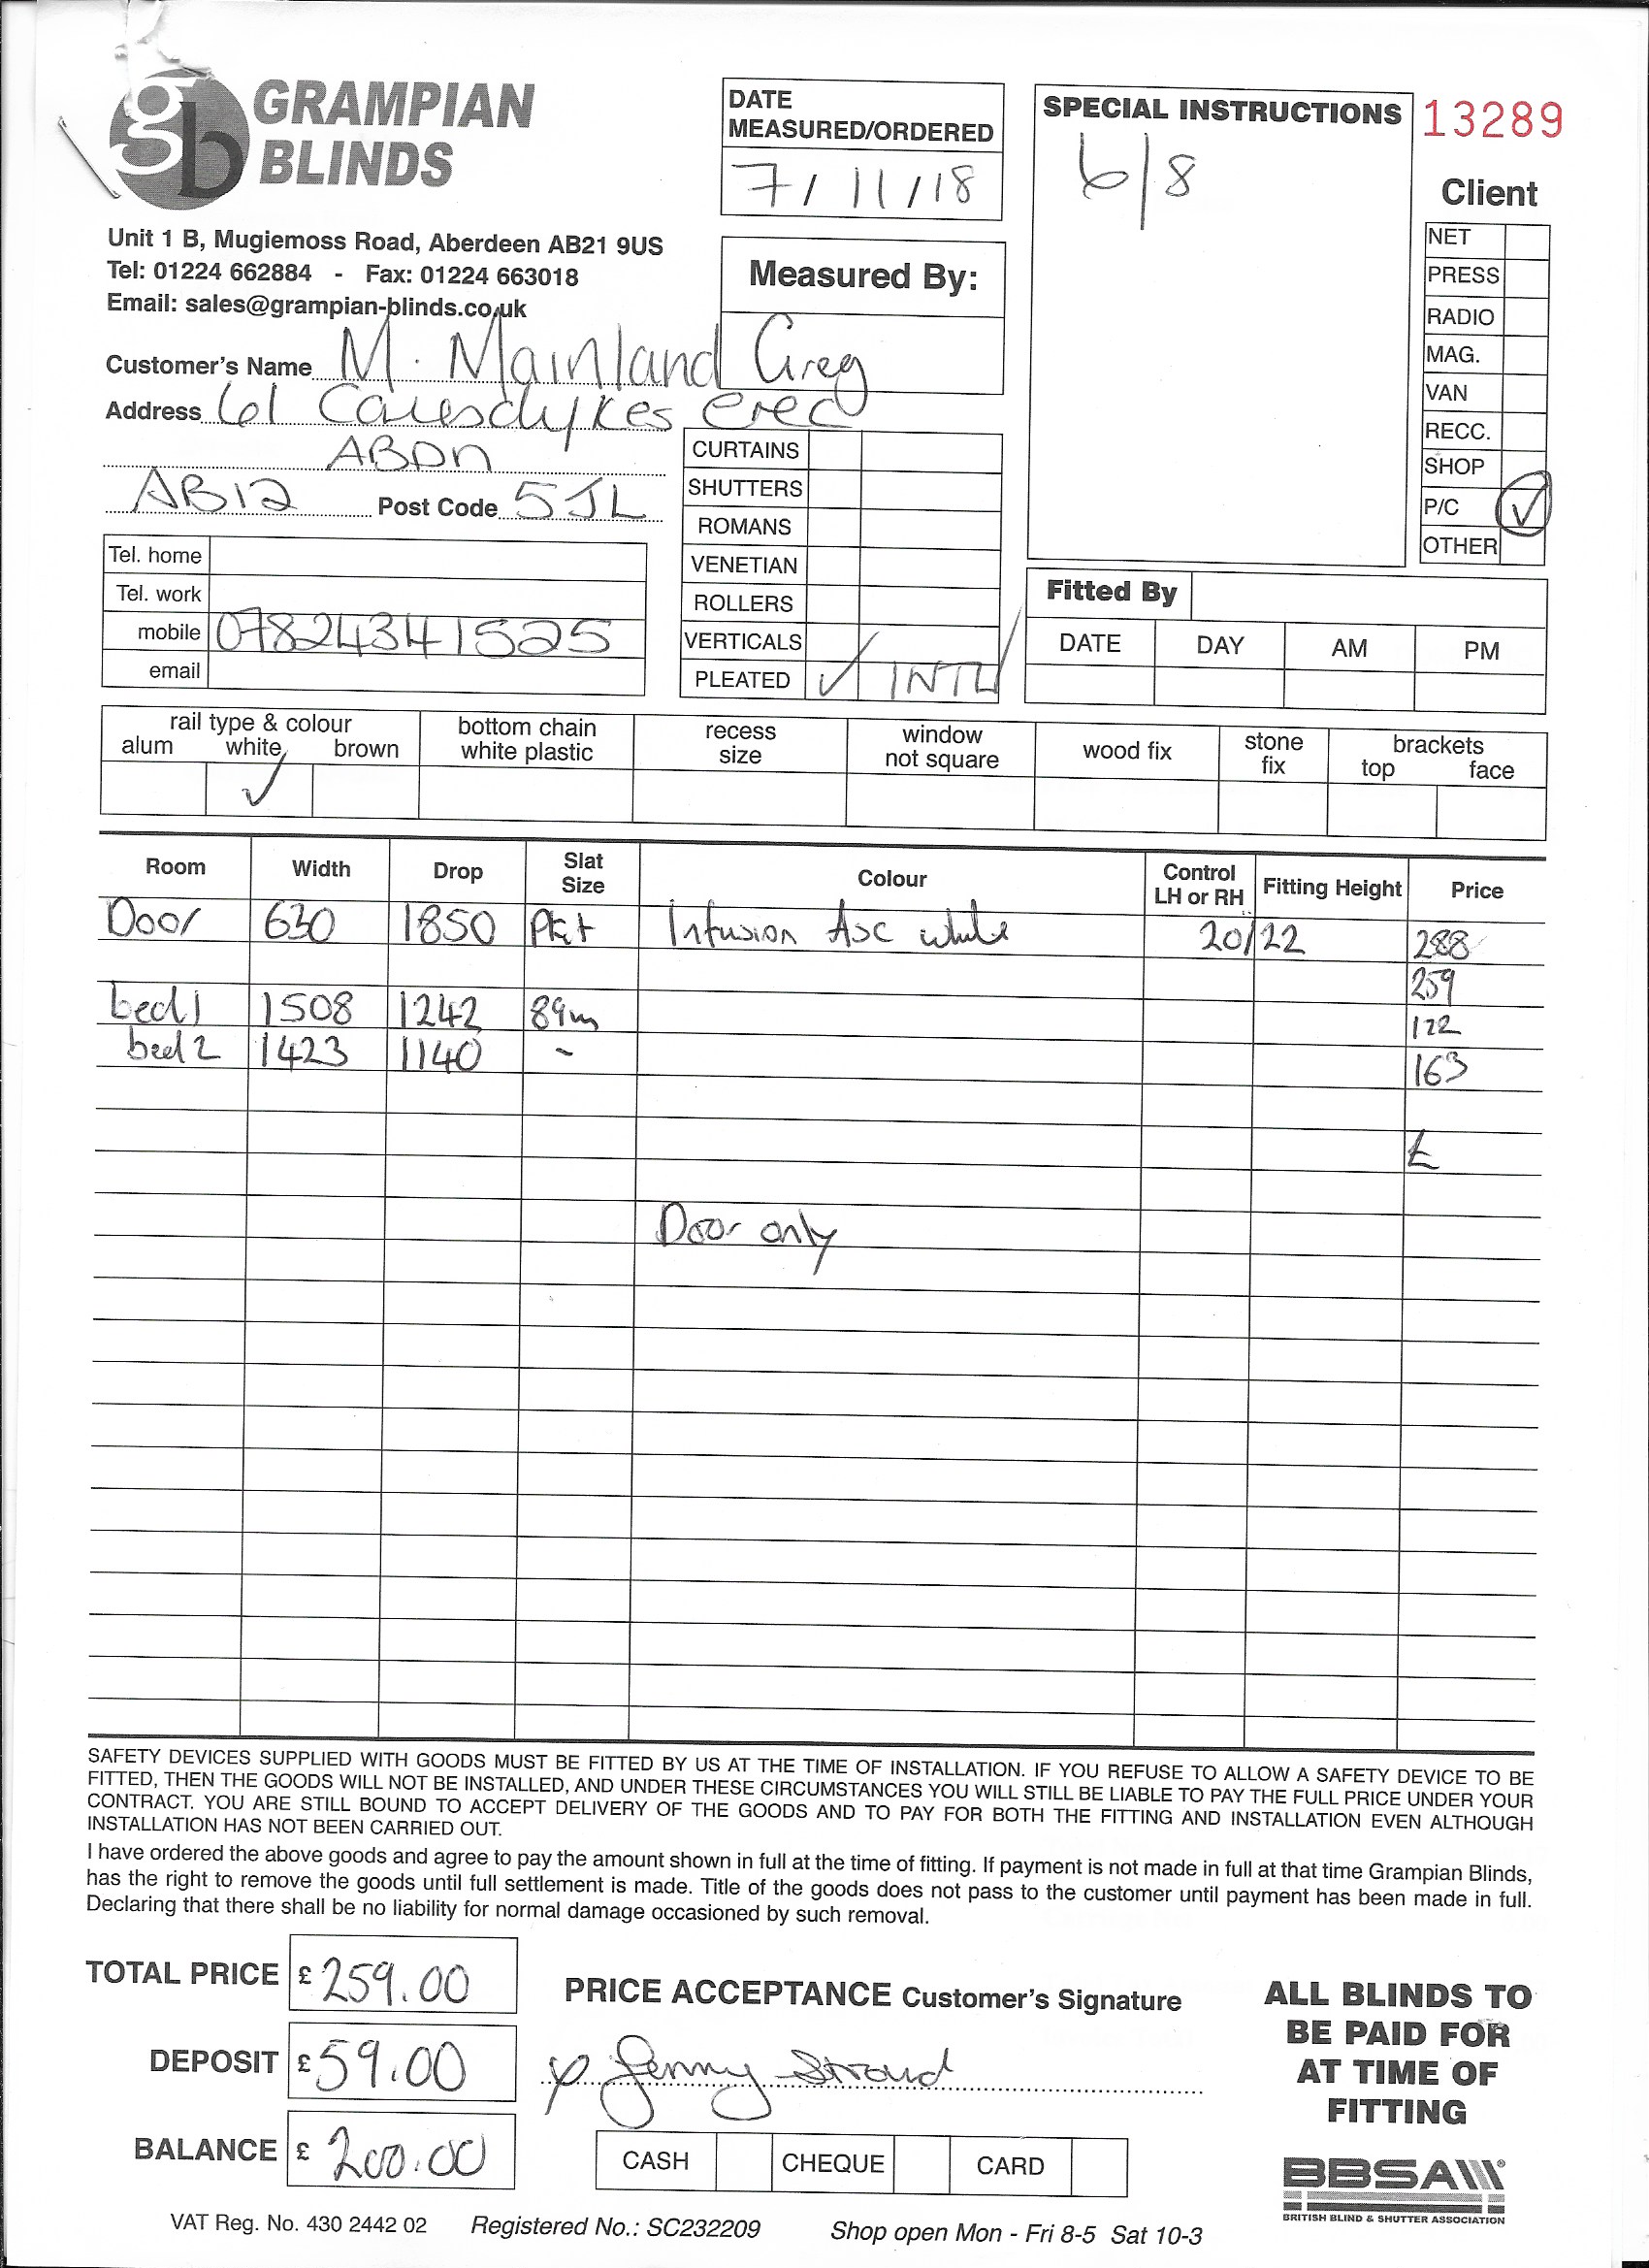 gb GRAMPIAN BLINDS
Unit 1 B, Mugiemoss Road, Aberdeen AB21 9US
Tel: 01224 662884 - Fax: 01224 663018
Email: sales@grampian-blinds.co.uk
DATE MEASURED/ORDERED
7/11/18
Measured By:
SPECIAL INSTRUCTIONS
6/8
13289
Client
NET
PRESS
RADIO
MAG.
VAN
RECC.
SHOP
P/C ✓
OTHER
Customer's Name M. Mainland Greg
Address 61
ABDN
AB12 Post Code 5JL
Tel. home
Tel. work
mobile 07824341525
email
CURTAINS
SHUTTERS
ROMANS
VENETIAN
ROLLERS
VERTICALS
PLEATED ✓ INTU
Fitted By
DATE DAY AM PM
rail type & colour
alum white brown
✓
bottom chain white plastic
recess size
window not square
wood fix
stone fix
brackets
top face
Room Width Drop Slat Size Colour Control LH or RH Fitting Height Price
Door 630 1850 Infusion Asc white 20/22 288
259
bed 1 1508 1242 89m 122
bed 2 1423 1140 - 163
£
Door only
SAFETY DEVICES SUPPLIED WITH GOODS MUST BE FITTED BY US AT THE TIME OF INSTALLATION. IF YOU REFUSE TO ALLOW A SAFETY DEVICE TO BE
FITTED, THEN THE GOODS WILL NOT BE INSTALLED, AND UNDER THESE CIRCUMSTANCES YOU WILL STILL BE LIABLE TO PAY THE FULL PRICE UNDER YOUR
CONTRACT. YOU ARE STILL BOUND TO ACCEPT DELIVERY OF THE GOODS AND TO PAY FOR BOTH THE FITTING AND INSTALLATION EVEN ALTHOUGH
INSTALLATION HAS NOT BEEN CARRIED OUT.
I have ordered the above goods and agree to pay the amount shown in full at the time of fitting. If payment is not made in full at that time Grampian Blinds,
has the right to remove the goods until full settlement is made. Title of the goods does not pass to the customer until payment has been made in full.
Declaring that there shall be no liability for normal damage occasioned by such removal.
TOTAL PRICE £259.00
DEPOSIT £59.00
BALANCE £200.00
PRICE ACCEPTANCE Customer's Signature
x Jenny
CASH CHEQUE CARD
ALL BLINDS TO
BE PAID FOR
AT TIME OF
FITTING
BBSA
BRITISH BLIND & SHUTTER ASSOCIATION
VAT Reg. No. 430 2442 02 Registered No.: SC232209 Shop open Mon - Fri 8-5 Sat 10-3